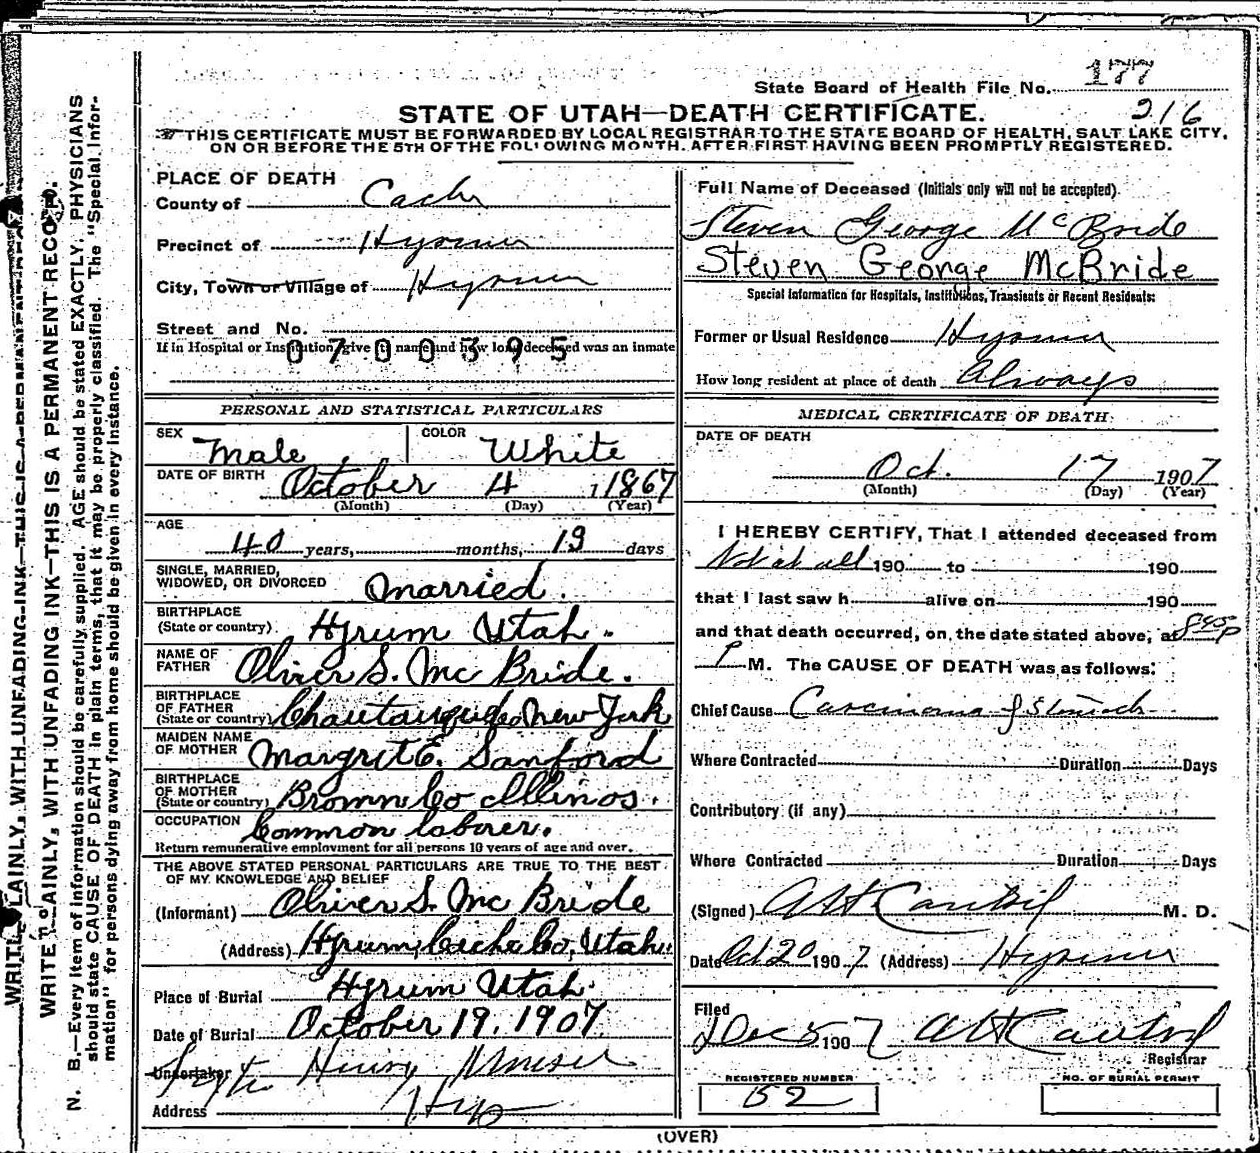 State Board of Health File No. 177
216
STATE OF UTAH—DEATH CERTIFICATE.
THIS CERTIFICATE MUST BE FORWARDED BY LOCAL REGISTRAR TO THE STATE BOARD OF HEALTH, SALT LAKE CITY,
ON OR BEFORE THE 5TH OF THE FOLLOWING MONTH. AFTER FIRST HAVING BEEN PROMPTLY REGISTERED.
PLACE OF DEATH
County of Cache
Precinct of Hyrum
City, Town or Village of Hyrum
Street and No.
If in Hospital or Institution give name and how long deceased was an inmate
0700395
PERSONAL AND STATISTICAL PARTICULARS
SEX Male COLOR White
DATE OF BIRTH October 4 1867
(Month) (Day) (Year)
AGE
40 years, months, 13 days
SINGLE, MARRIED,
WIDOWED, OR DIVORCED Married.
BIRTHPLACE
(State or country) Hyrum Utah.
NAME OF
FATHER Oliver S. Mc Bride.
BIRTHPLACE
OF FATHER
(State or country) Chautauqua New York
MAIDEN NAME
OF MOTHER Margrit E. Sanford
BIRTHPLACE
OF MOTHER
(State or country) Brown Co Illinos.
OCCUPATION Common laborer.
Return remunerative employment for all persons 10 years of age and over.
THE ABOVE STATED PERSONAL PARTICULARS ARE TRUE TO THE BEST
OF MY KNOWLEDGE AND BELIEF
(Informant) Oliver S. Mc Bride
(Address) Hyrum, Cache Co, Utah.
Place of Burial Hyrum Utah.
Date of Burial October 19, 1907
Undertaker Sexton Henry
Address Hyr
Full Name of Deceased (Initials only will not be accepted).
Steven George McBride
Steven George McBride
Special Information for Hospitals, Institutions, Transients or Recent Residents:
Former or Usual Residence Hyrum
How long resident at place of death Always
MEDICAL CERTIFICATE OF DEATH
DATE OF DEATH
Oct. 17 1907
(Month) (Day) (Year)
I HEREBY CERTIFY, That I attended deceased from
Not at all 190 to 190
that I last saw h alive on 190
and that death occurred, on the date stated above, at 845 P
P M. The CAUSE OF DEATH was as follows:
Chief Cause Carcinoma of Stomach
Where Contracted Duration Days
Contributory (if any)
Where Contracted Duration Days
(Signed) M. D.
Date Oct 20 1907 (Address) Hyrum
Filed
Dec 5 1907
Registrar
REGISTERED NUMBER
52
NO. OF BURIAL PERMIT
(OVER)
WRITE PLAINLY, WITH UNFADING INK—THIS IS A PERMANENT RECORD.
N. B.—Every item of information should be carefully supplied. AGE should be stated EXACTLY. PHYSICIANS
should state CAUSE OF DEATH in plain terms, that it may be properly classified. The "Special Infor-
mation" for persons dying away from home should be given in every instance.